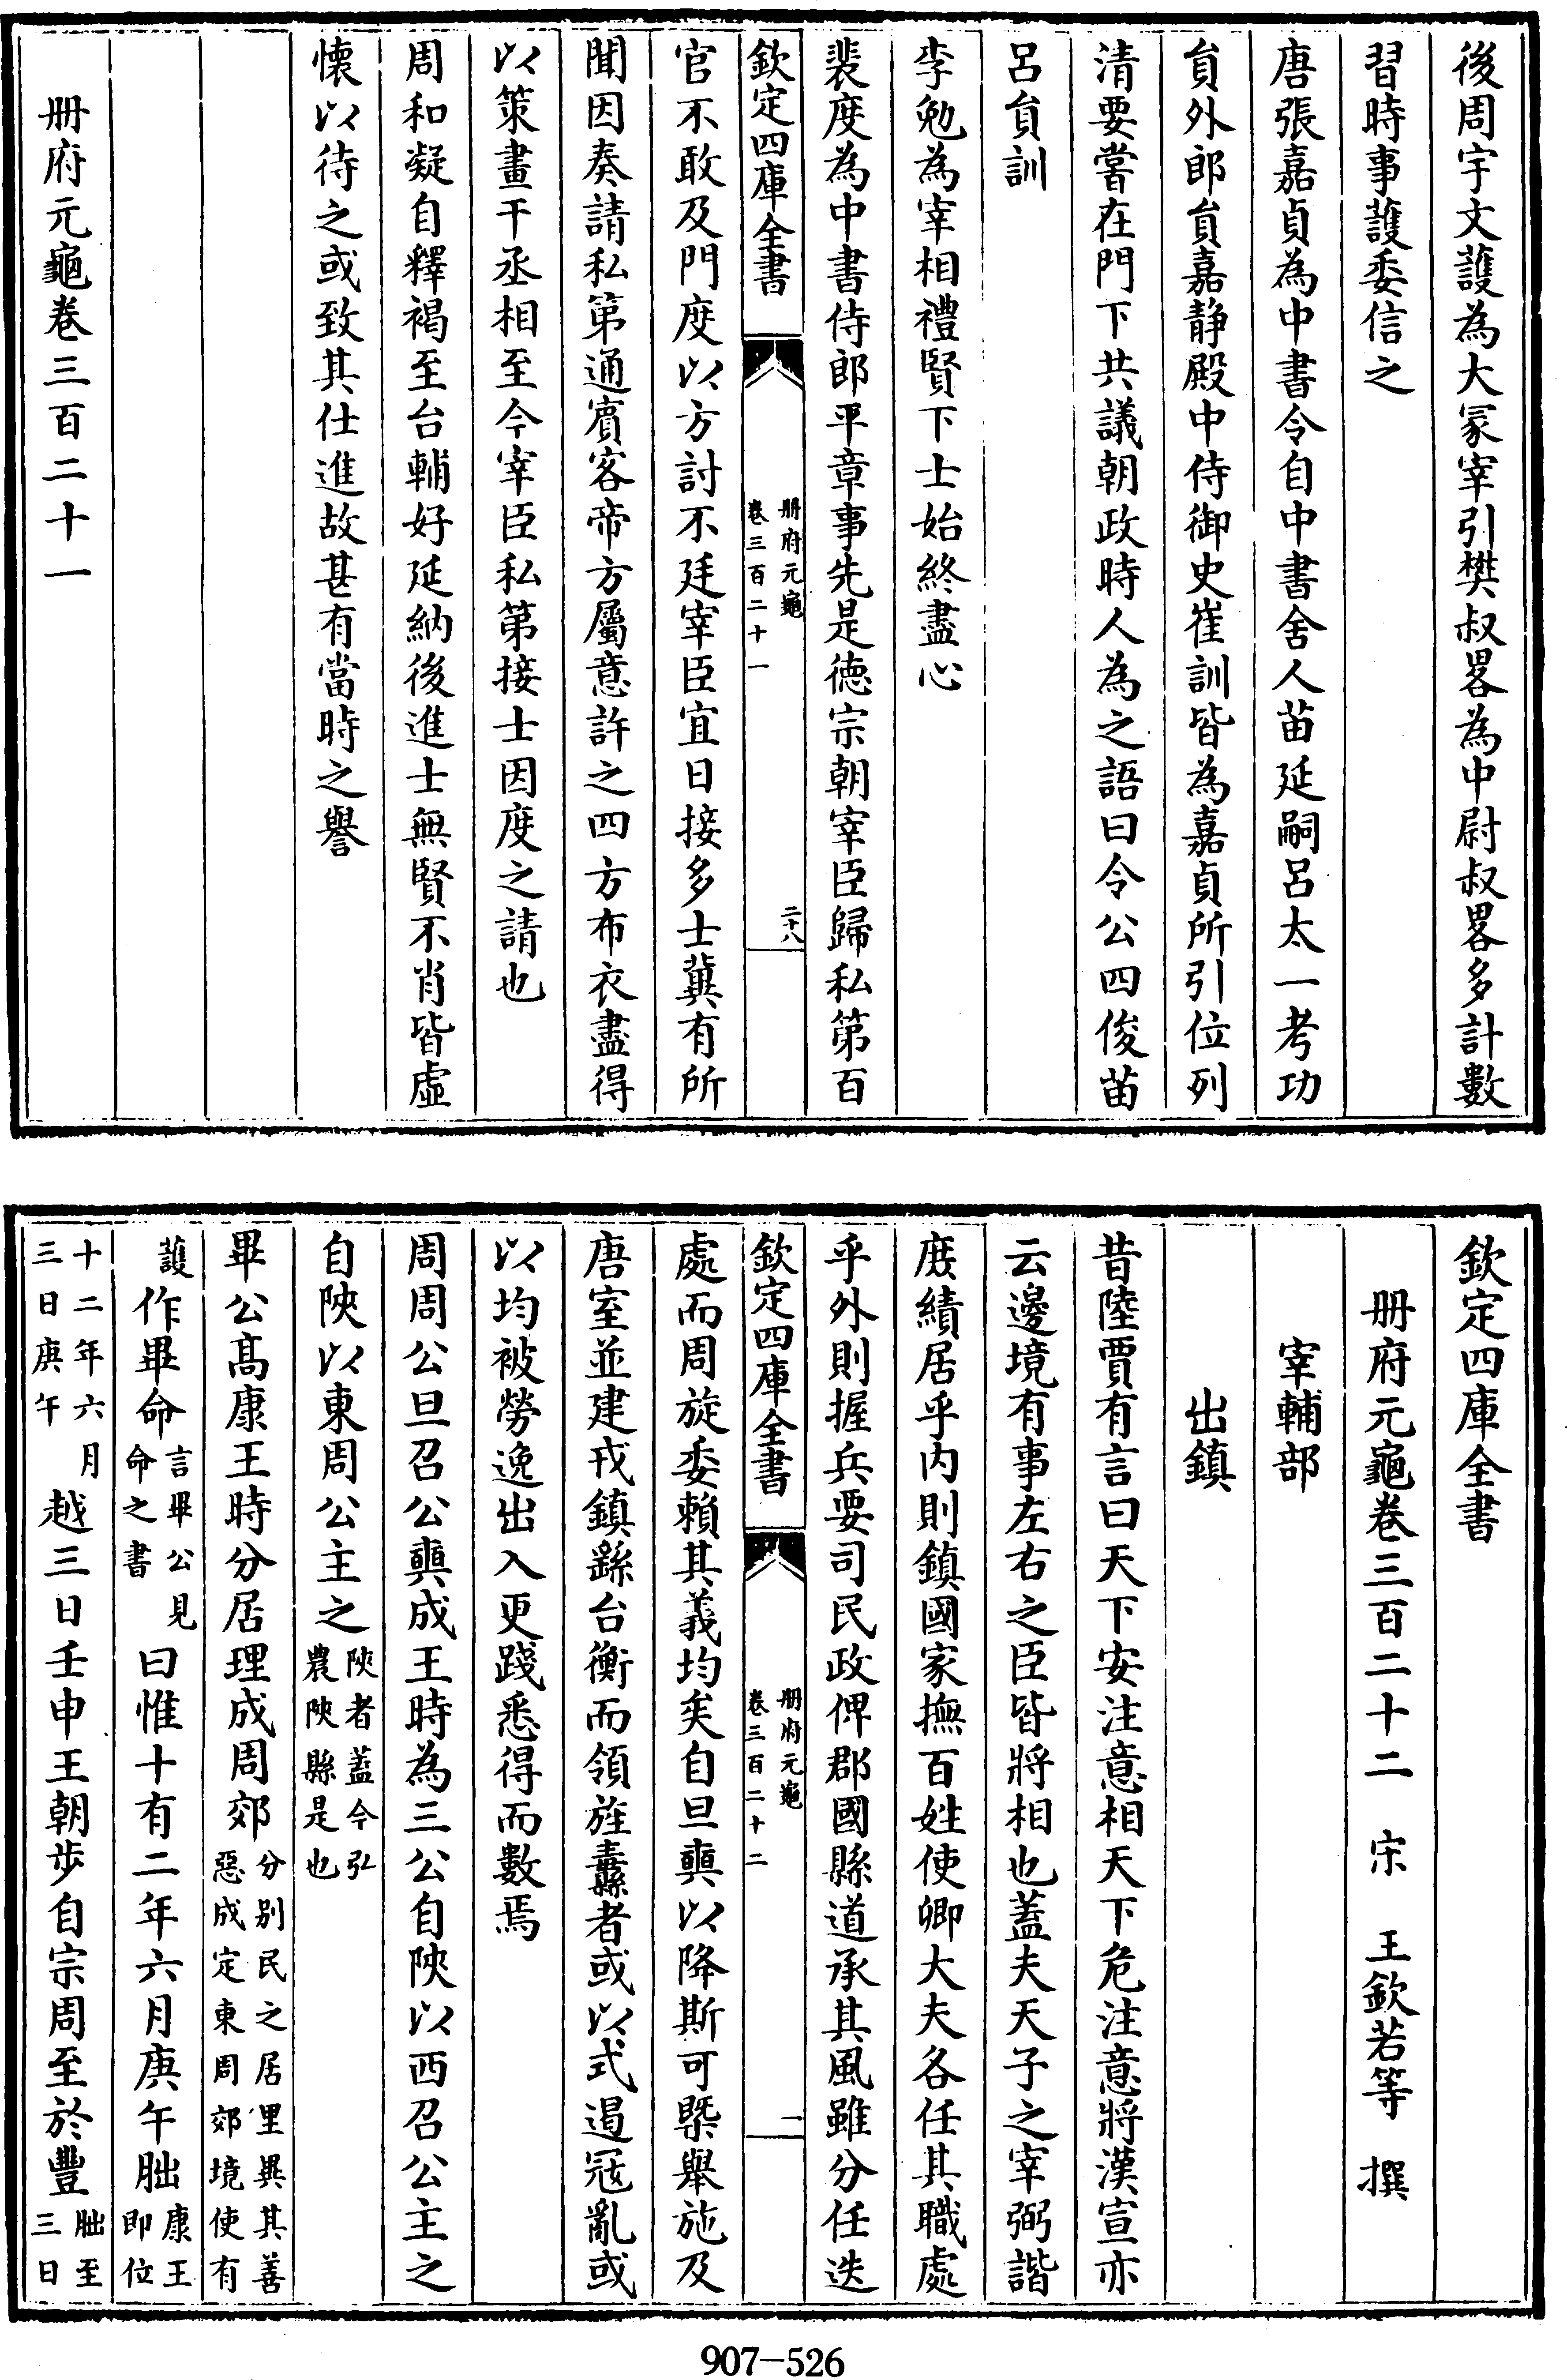 後周宇文護為大冢宰引樊叔畧為中尉叔畧多計數
習時事護委信之
唐張嘉貞為中書令自中書舍人苗延嗣呂太一考功
貟外郎貟嘉靜殿中侍御史崔訓皆為嘉貞所引位列
清要嘗在門下共議朝政時人為之語曰令公四俊苗
呂貟訓
李勉為宰相禮賢下士始終盡心
裴度為中書侍郎平章事先是德宗朝宰臣歸私第百
欽定四庫全書
册府元龜
卷三百二十一
二十八
官不敢及門度以方討不廷宰臣宜日接多士冀有所
聞因奏請私第通賓客帝方屬意許之四方布衣盡得
以策畫干丞相至今宰臣私第接士因度之請也
周和凝自釋褐至台輔好延納後進士無賢不肖皆虛
懐以待之或致其仕進故甚有當時之譽
册府元龜卷三百二十一
欽定四庫全書
册府元龜卷三百二十二 宋 王欽若等 撰
宰輔部
出鎮
昔陸賈有言曰天下安注意相天下危注意將漢宣亦
云邊境有事左右之臣皆將相也蓋夫天子之宰弼諧
庶績居乎内則鎮國家撫百姓使卿大夫各任其職處
乎外則握兵要司民政俾郡國縣道承其風雖分任迭
欽定四庫全書
册府元龜
卷三百二十二
一
處而周旋委賴其義均矣自旦奭以降斯可槩舉施及
唐室並建戎鎮繇台衡而領旌纛者或以式遏冦亂或
以均被勞逸出入更踐悉得而數焉
周周公旦召公奭成王時為三公自陜以西召公主之
自陜以東周公主之陜者蓋今弘農陜縣是也
畢公髙康王時分居理成周郊分别民之居里異其善惡成定東周郊境使有
護作畢命言畢公見命之書曰惟十有二年六月庚午朏康王即位
十二年六月三日庚午越三日壬申王朝步自宗周至於豐朏至三日
907-526